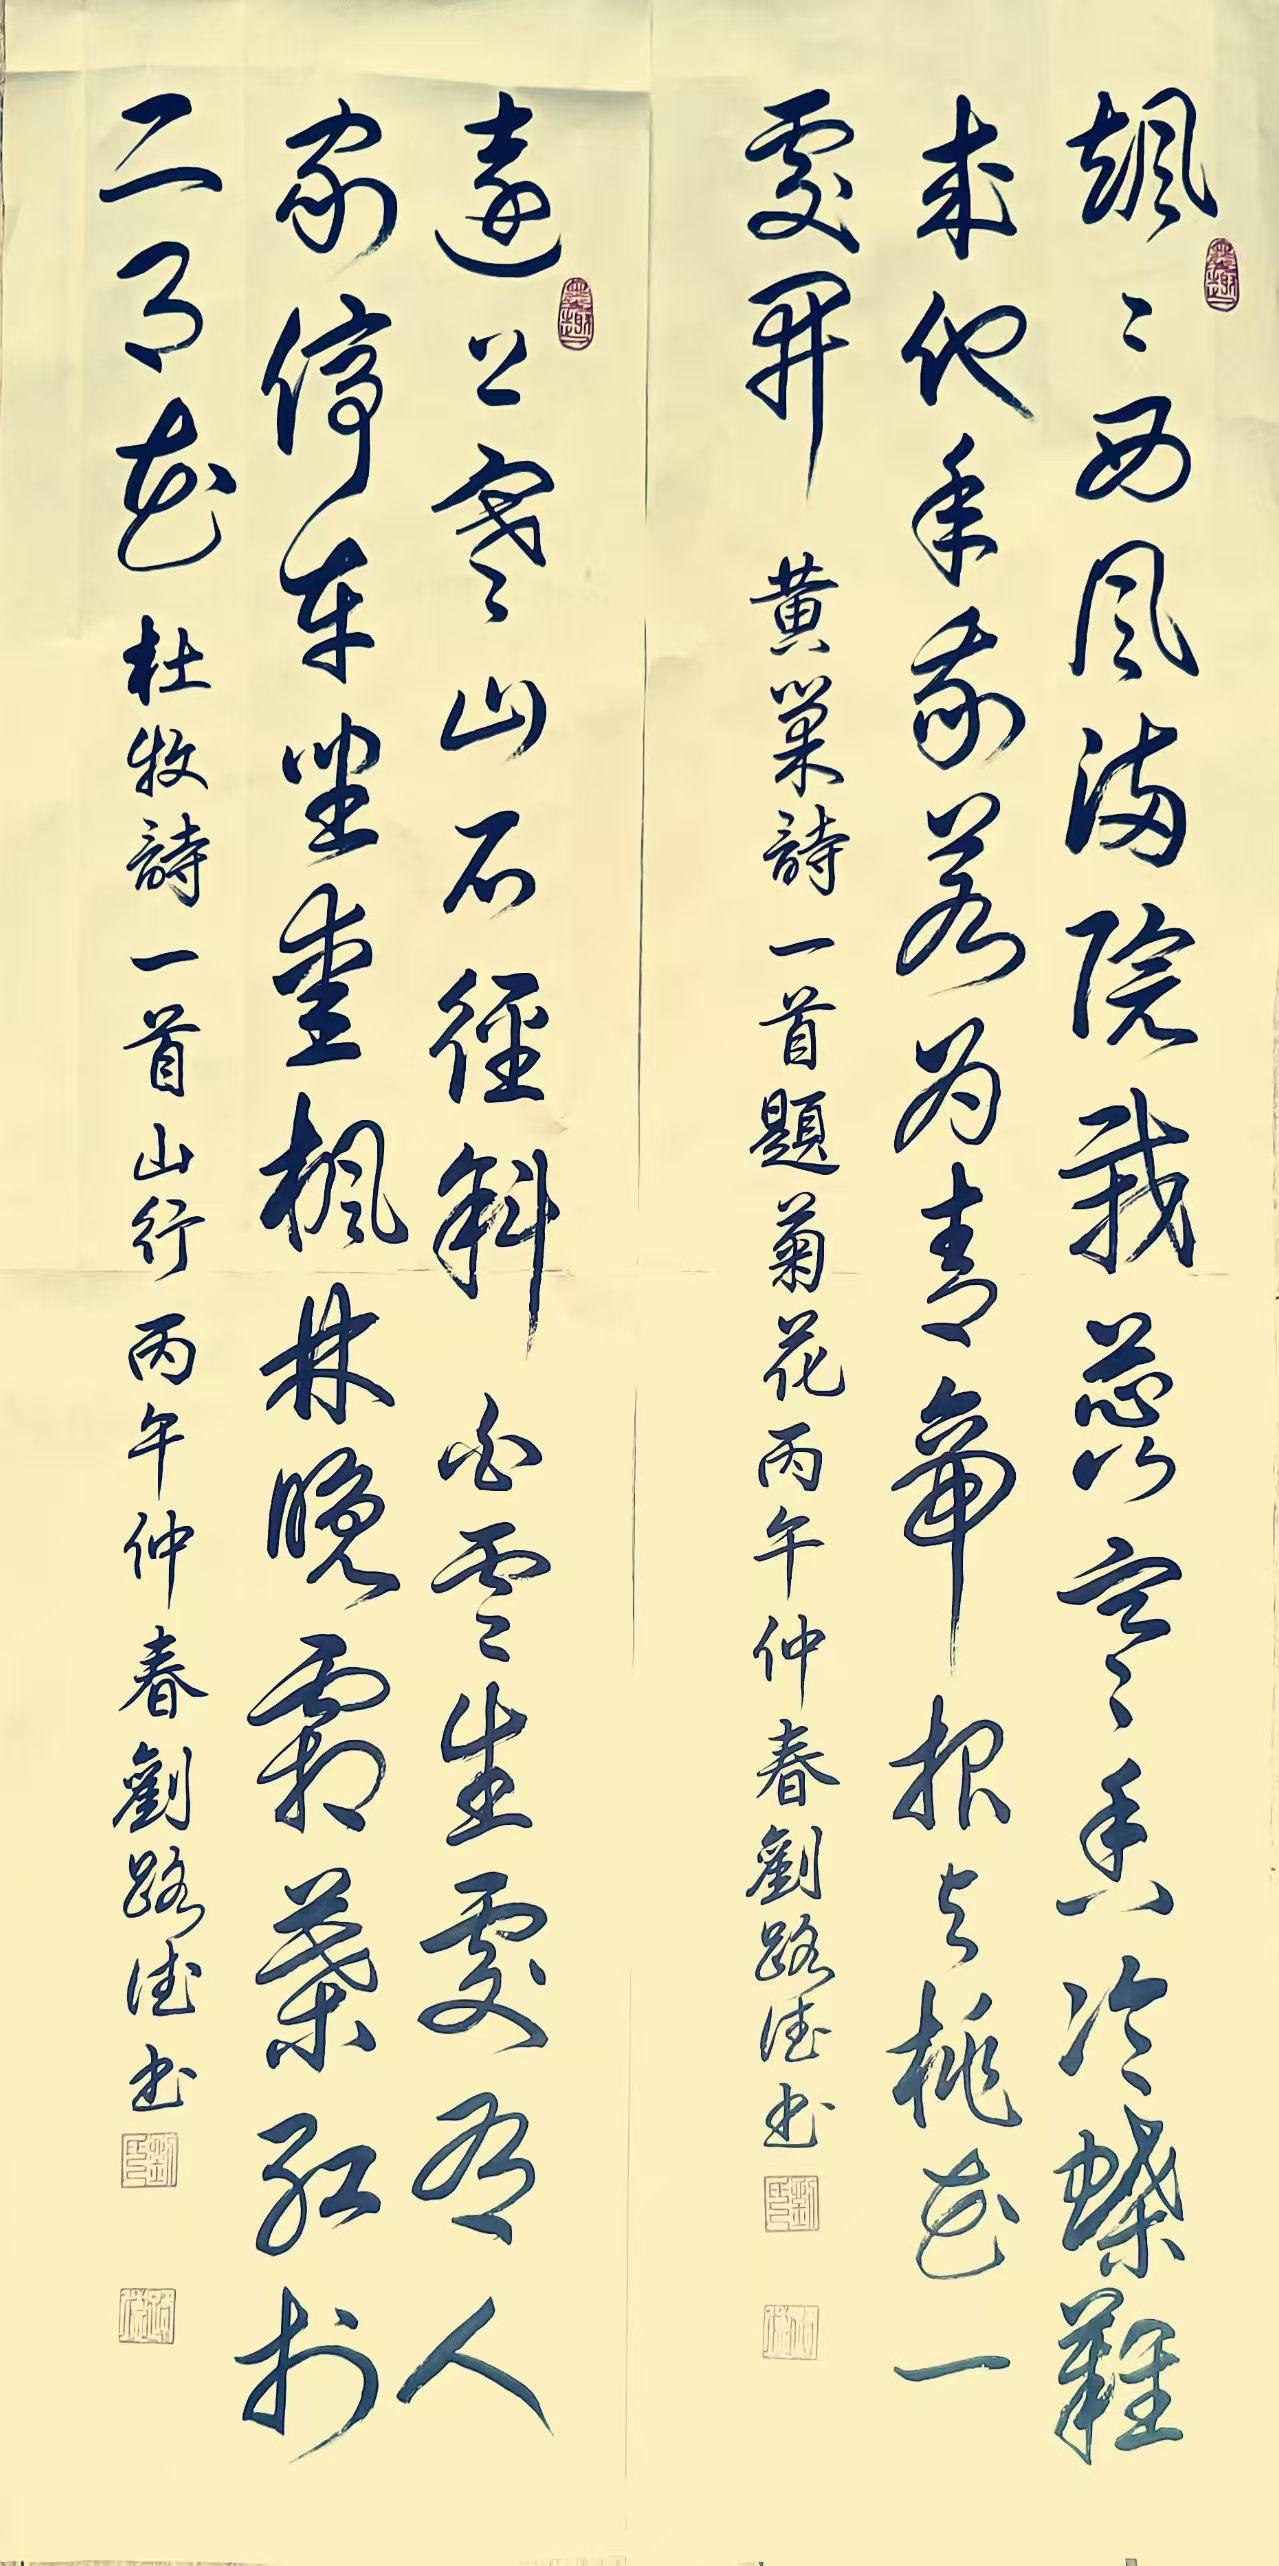 颯〻西風满院栽蕊寒香冷蝶難
来他年我若为青帝报与桃花一
處開 黄巢詩一首題菊花丙午仲春劉路德书
墨趣
遠上寒山石徑斜白雲生處有人
家停車坐愛楓林晚霜葉紅於
二月花 杜牧詩一首山行丙午仲春劉路德书
墨趣